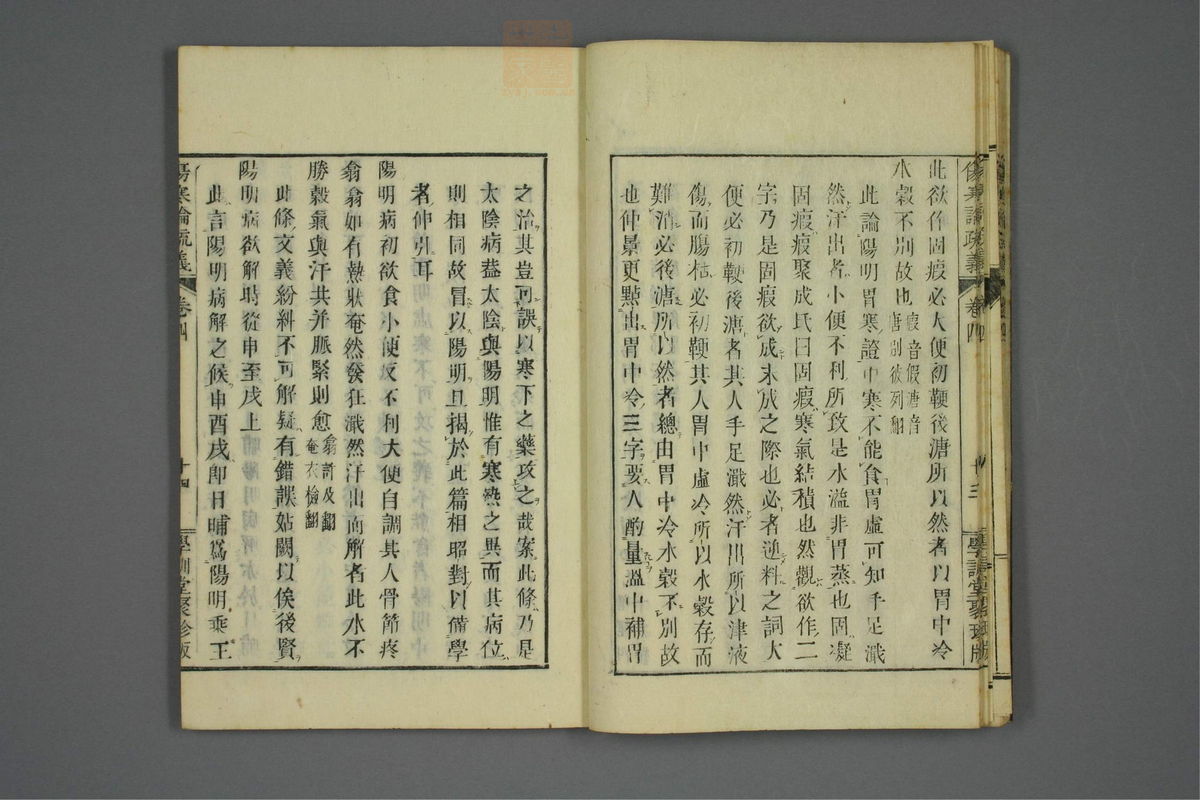 此欲作固瘕必大便初鞕後溏所以然者以胃中冷
水穀不別故也瘕音假溏音
唐別彼列翻
此論陽明胃寒證中寒不能食胃虛可知手足濈
然汗出者小便不利所致是水溢非胃蒸也固凝
固瘕瘕聚成氏曰固瘕寒氣結積也然觀欲作二
字乃是固瘕欲成未成之際也必者逆料之詞大
便必初鞕後溏者其人手足濈然汗出所以津液
傷而腸枯必初鞕其人胃中虛冷所以水穀存而
難消必後溏所以然者總由胃中冷水穀不別故
也仲景更點出胃中冷三字要人酌量溫中補胃
傷寒論疏義 卷四 十三 學訓堂聚珍版
之治其豈可誤以寒下之藥攻之哉案此條乃是
太陰病蓋太陰與陽明惟有寒熱之異而其病位
則相同故冒以陽明且揭於此篇相照對以備學
者伸引耳
陽明病初欲食小便反不利大便自調其人骨節疼
翕翕如有熱狀奄然發狂濈然汗出而解者此水不
勝穀氣與汗共并脈緊則愈翕許及翻
奄衣檢翻
此條文義紛糾不可解疑有錯誤姑闕以俟後賢
陽明病欲解時從申至戌上
此言陽明病解之候申酉戌卽日晡爲陽明乘王
傷寒論疏義 卷四 十四 學訓堂聚珍版